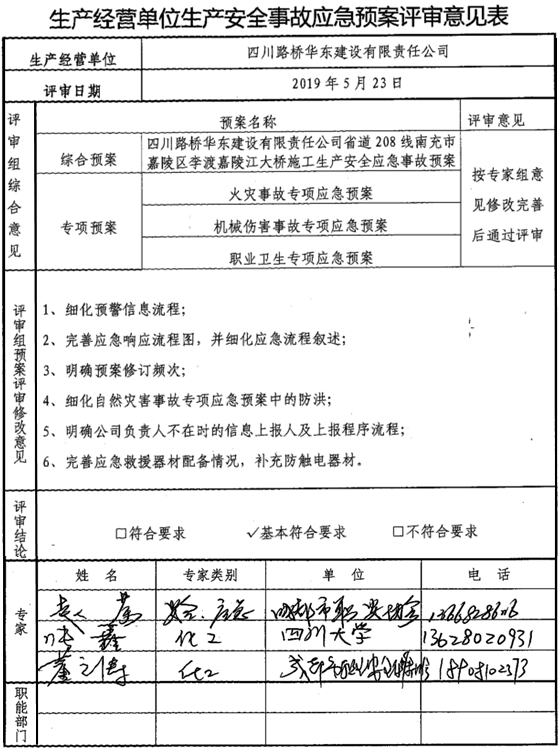 生产经营单位生产安全事故应急预案评审意见表
生产经营单位 四川路桥华东建设有限责任公司
评审日期 2019年5月23日
评审组综合意见
预案名称 评审意见
综合预案
四川路桥华东建设有限责任公司省道208线南充市
嘉陵区李渡嘉陵江大桥施工生产安全应急事故预案
专项预案
火灾事故专项应急预案
机械伤害事故专项应急预案
职业卫生专项应急预案
按专家组意
见修改完善
后通过评审
评审组预案评审修改意见
1、细化预警信息流程;
2、完善应急响应流程图,并细化应急流程叙述;
3、明确预案修订频次;
4、细化自然灾害事故专项应急预案中的防洪;
5、明确公司负责人不在时的信息上报人及上报程序流程;
6、完善应急救援器材配备情况,补充防触电器材。
评审结论
□符合要求 √基本符合要求 □不符合要求
专家
姓名 专家类别 单位 电话
安全、应急
鑫 化工 四川大学 13628020931
化工 18908102373
职能部门